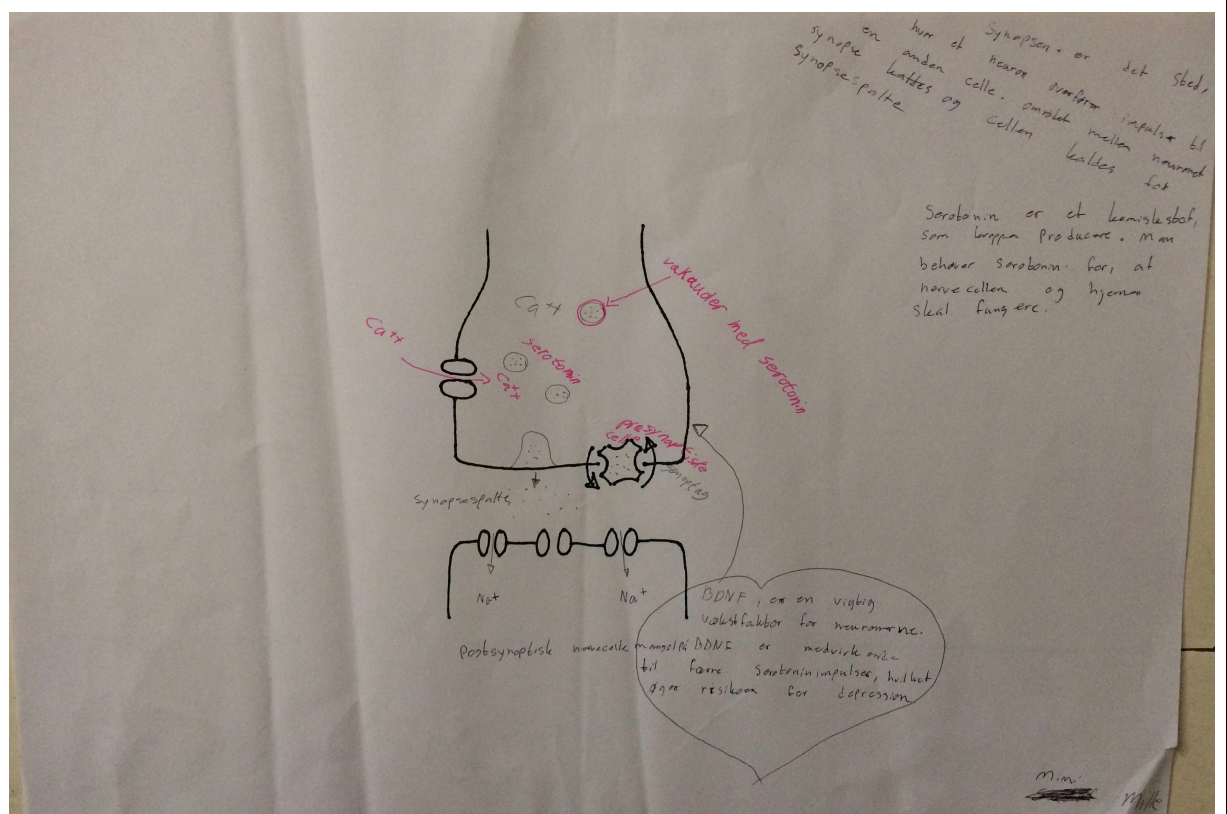 Synapsen. er det sted,
hvor et neuron overfører impulser til
en anden celle. området mellem neuronet
synapse kaldes og cellen kaldes for
synapsespalte
Serotonin er et kemiskstof,
som kroppen Producere. Man
behøver serotonin for, at
nervecellen og hjerne
skal fungere.
Ca++
vakauder med serotonin
Ca++
serotonin
Ca++
præsynaptiske
celle
genoptag
synapsespalte
Na+
Na+
BDNF, er en vigtig
vækstfaktor for neuronerne.
postsynoptisk nervecelle
mangel på BDNF er medvirkende
til færre serotoninimpulser, hvilket
øger risikoen for depression
Mimi
Mille